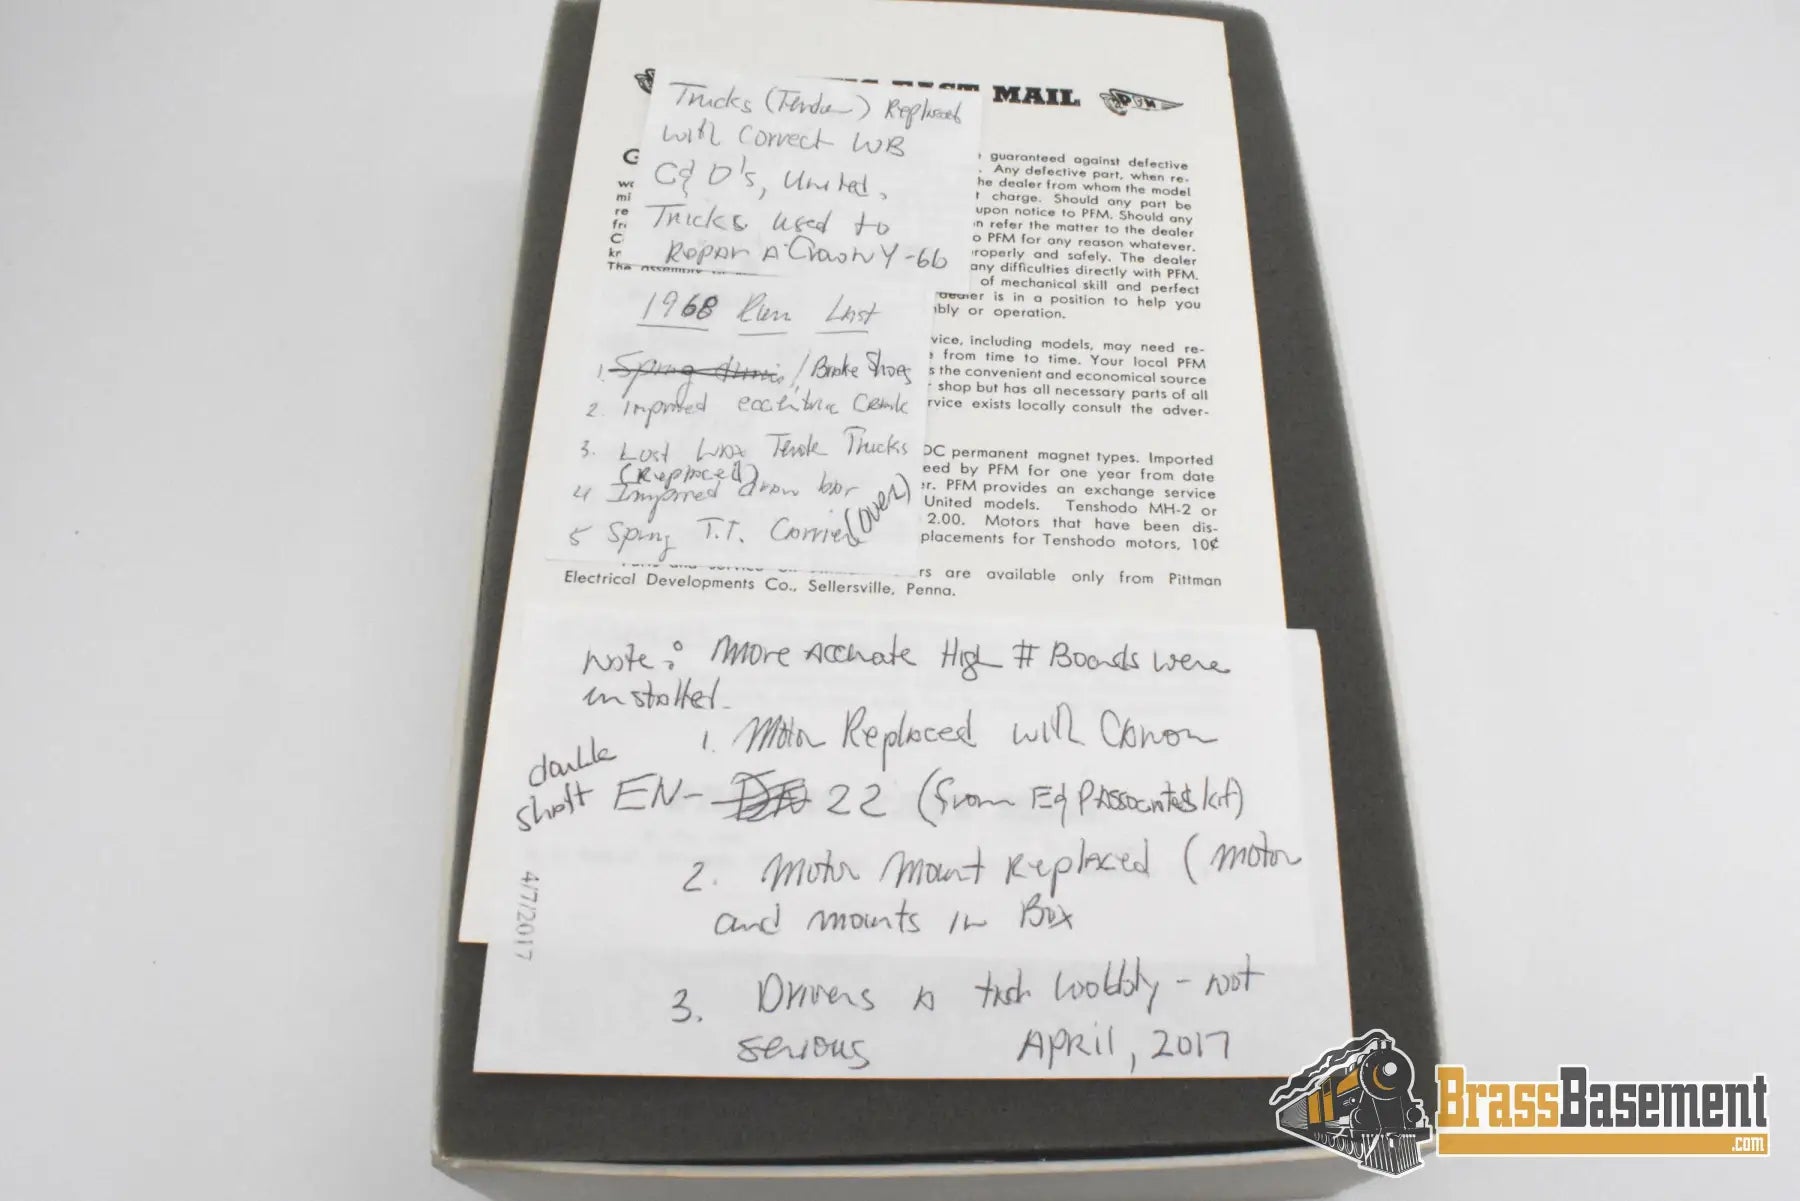 FAST MAIL
PFM
Trucks (Tender) Replaced
with Correct WB
C& D's, United.
Trucks used to
Repair A Crown Y-6b
guaranteed against defective
. Any defective part, when re-
he dealer from whom the model
t charge. Should any part be
upon notice to PFM. Should any
n refer the matter to the dealer
o PFM for any reason whatever.
roperly and safely. The dealer
any difficulties directly with PFM.
of mechanical skill and perfect
dealer is in a position to help you
bly or operation.
G
wo
mi
re
fr
C
kr
The
1968 Run Last
1. Spring / Brake Shoes
2. Improved eccentric Crank
3. Lost Wax Tender Trucks
(Replaced)
4 Improved draw bar
5 Spring T.T. Carrier (over)
vice, including models, may need re-
from time to time. Your local PFM
s the convenient and economical source
shop but has all necessary parts of all
rvice exists locally consult the adver-
DC permanent magnet types. Imported
eed by PFM for one year from date
er. PFM provides an exchange service
United models. Tenshodo MH-2 or
2.00. Motors that have been dis-
placements for Tenshodo motors, 10¢
rs are available only from Pittman
Electrical Developments Co., Sellersville, Penna.
Note: More Accurate High # Boards were
installed.
1. Motor Replaced with Canon
double
shaft EN- 22 (from E & P Associates kit)
2. Motor Mount Replaced (Motor
and mounts in Box
3. Drivers a tad wobbly - not
serious April, 2017
4/7/2017
BrassBasement
.com